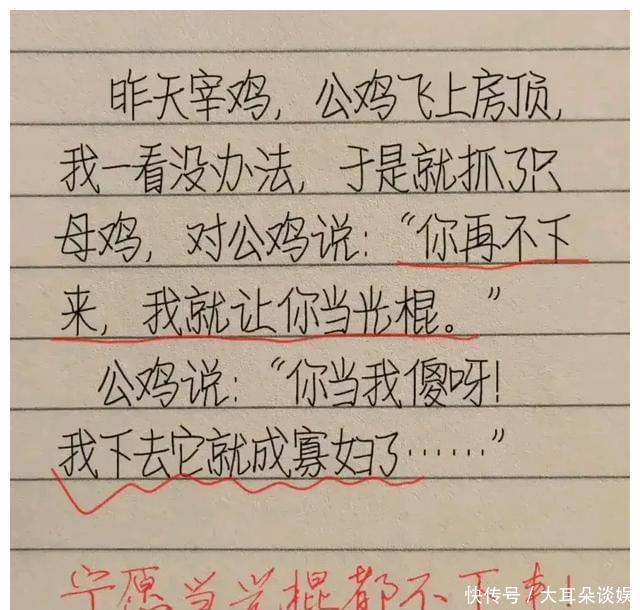 昨天宰鸡，公鸡飞上房顶，
我一看没办法，于是就抓了只
母鸡，对公鸡说：“你再不下
来，我就让你当光棍。”
公鸡说：“你当我傻呀！
我下去它就成寡妇了……”
宁愿当光棍都不下来！
快传号／大耳朵谈娱